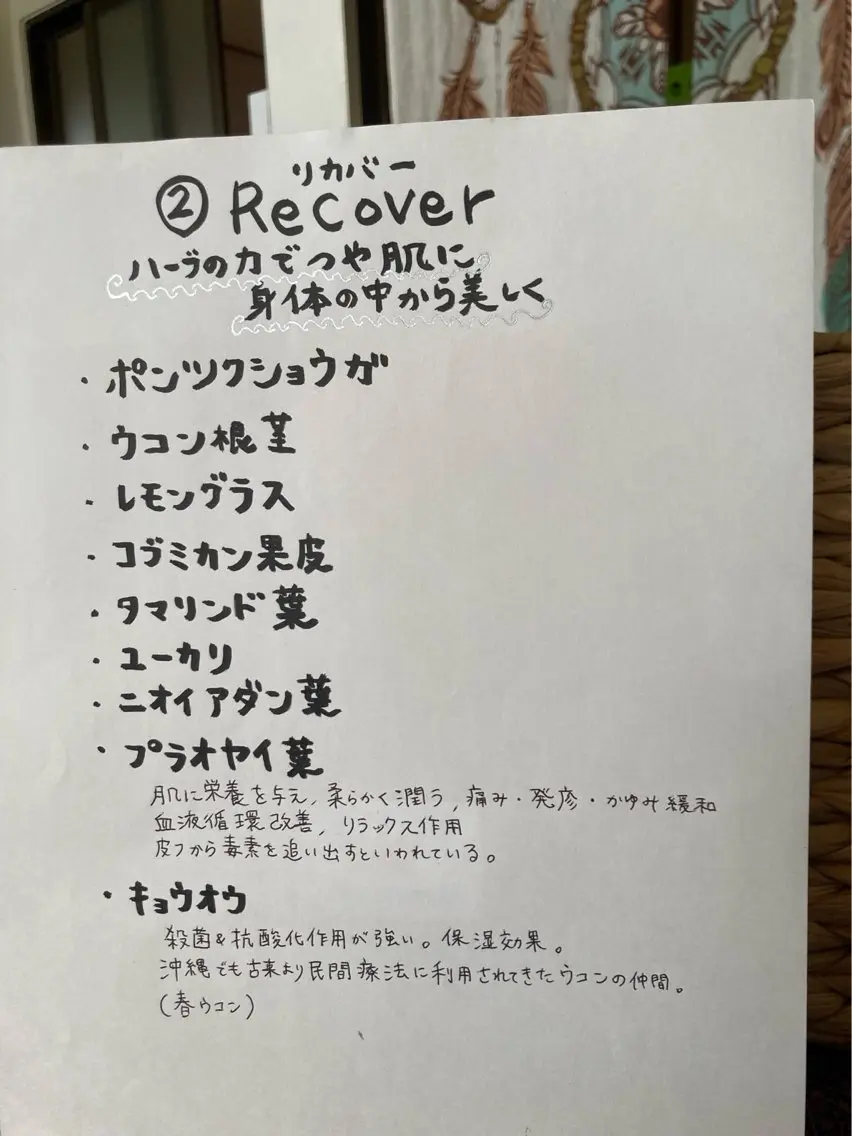 リカバー
② Recover
ハーブの力でつや肌に
身体の中から美しく
・ポンツクショウガ
・ウコン根茎
・レモングラス
・コブミカン果皮
・タマリンド葉
・ユーカリ
・ニオイアダン葉
・プラオヤイ葉
肌に栄養を与え,柔らかく潤う,痛み・発疹・かゆみ緩和
血液循環改善,リラックス作用
皮フから毒素を追い出すといわれている。
・キョウオウ
殺菌&抗酸化作用が強い。保湿効果。
沖縄でも古来より民間療法に利用されてきたウコンの仲間。
(春ウコン)